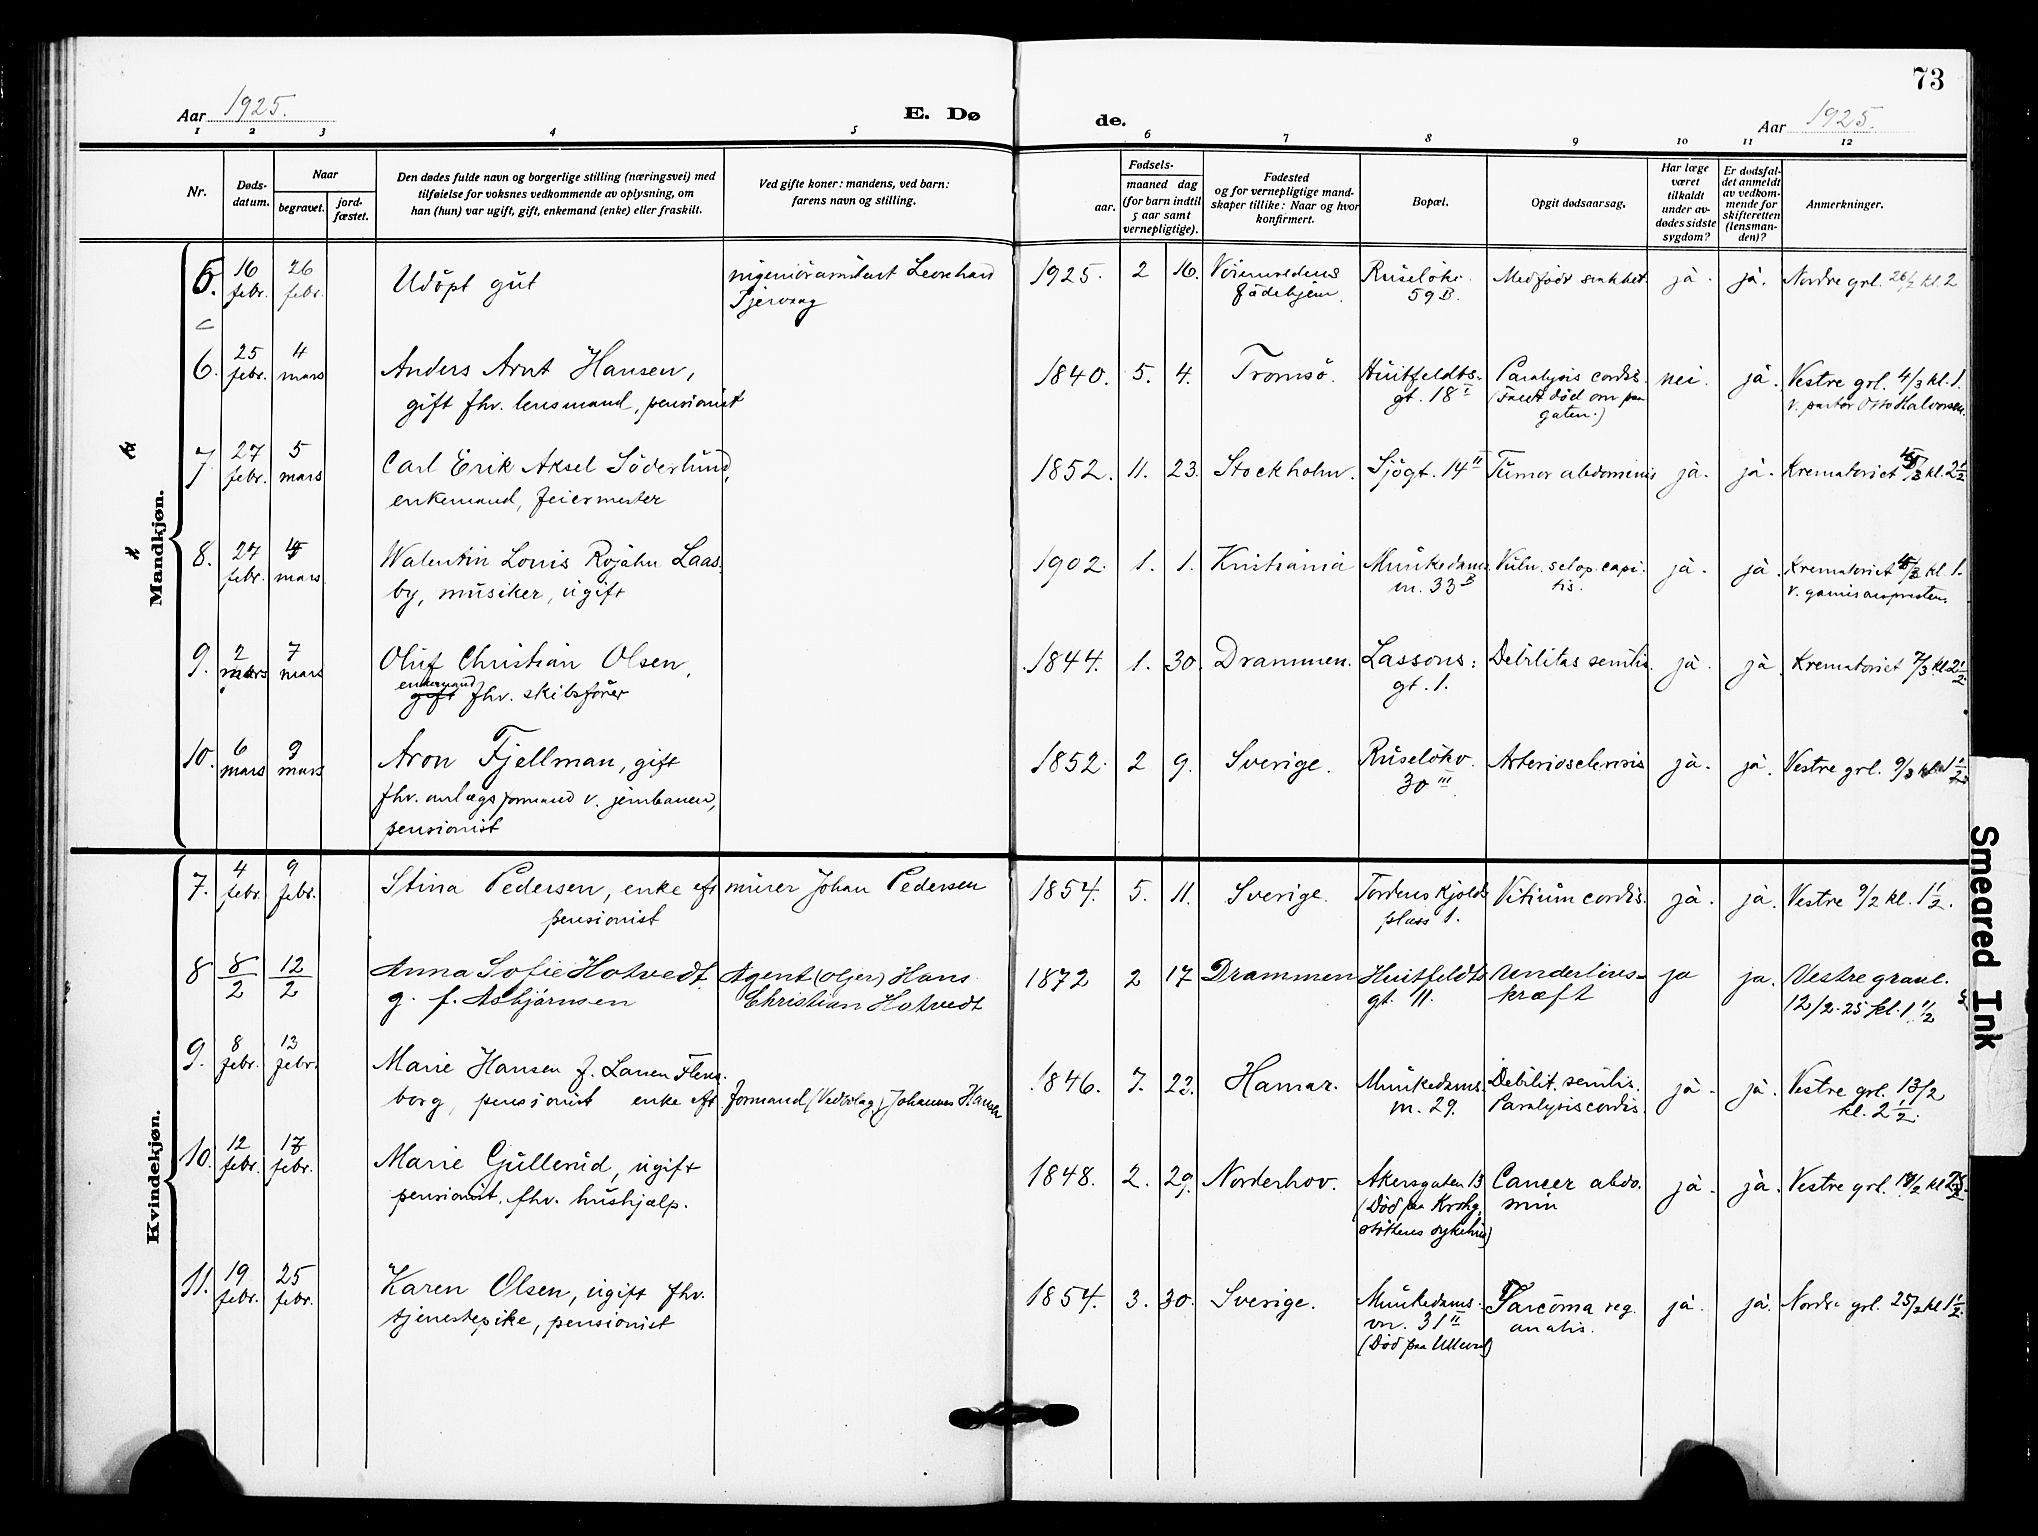 73
Aar 1925.
E. Dø
de.
Aar 1925.
1 2 3 4 5 6 7 8 9 10 11 12
Nr.
Døds-
datum.
Naar
begravet.
jord-
fæstet.
Den dødes fulde navn og borgerlige stilling (næringsvei) med
tilføielse for voksnes vedkommende av oplysning, om
han (hun) var ugift, gift, enkemand (enke) eller fraskilt.
Ved gifte koner: mandens, ved barn:
farens navn og stilling.
Fødsels-
aar.
maaned dag
(for barn indtil
5 aar samt
vernepligtige).
Fødested
og for vernepligtige mand-
skaper tillike: Naar og hvor
konfirmert.
Bopæl.
Opgit dødsaarsag.
Har læge
været
tilkaldt
under av-
dødes sidste
sygdom?
Er dødsfal-
det anmeldt
av vedkom-
mende for
skifteretten
(lensman-
den)?
Anmerkninger.
Mandkjøn.
5. 16 febr. 26 febr. Udöpt gut
1925. 2 16.
födehjem.
59 B.
ja. ja. Nordre grl. 26/2 kl. 2
6. 25 febr. 4 mars Anders Arnt Hansen,
gift fhv. lensmand, pensionist
1840. 5. 4. Tromsö. Huitfeldts-
gt. 18 I
Paralysis cordis.
gaten.)
nei. ja. Vestre grl. 4/3 kl. 1.
v. pastor Otto Halvorsen.
7. 27 febr. 5 mars Carl Erik Aksel Söderlund,
enkemand, feiermester
1852. 11. 23. Stockholm. Sjögt. 14 II Tumor abdominis ja. ja. Krematoriet kl. 2 1/2
8. 27 febr. mars Valentin Louis Rojahn Laas-
by, musiker, ugift
1902. 1. 1. Kristiania Munkedams-
vn. 33 B
Vuln. sclop. capi-
tis.
ja. ja. Krematoriet kl. 1.
9. 2 mars 7 mars Oluf Christian Olsen,
enkemand
gift fhv. skibsförer
1844. 1. 30. Drammen. Lassons:
gt. 1.
Debilitas senilis. ja. ja Krematoriet 7/3 kl. 2 1/2
10. 6 mars 9 mars Aron Fjellman, gift
fhv. anlægsformand v. jernbanen,
pensionist
1852. 2 9. Sverige. Ruselökv.
30 III
Arteriosclerosis ja. ja. Vestre grl. 9/3 kl. 1 1/2
Kvindekjøn.
7. 4 febr. 9 febr. Stina Pedersen, enke eft murer Johan Pedersen
pensionist
1854. 5. 11. Sverige. Tordenskjolds
plass 1.
Vitium cordis. ja. ja. Vestre 9/2 kl. 1 1/2.
8 8/2 12/2 Anna Sofie Hotvedt
g. f. Asbjörnsen
Agent (oljer) Hans
Christian Hotvedt
1872 2 17 Drammen Huitfeldts
gt. 11.
Underlivs-
kræft
ja ja. Vestre gravl.
12/2-25 kl. 1 1/2
9. 8 febr. 13 febr. Marie Hansen f. Larsen Flens-
borg, pensionist enke eft formand (Vedbolag) Johannes Hansen
1846. 7. 22. Hamar. Munkedams-
vn. 29.
Debilit. senilis.
Paralysis cordis.
ja. ja. Vestre grl. 13/2
kl. 2 1/2.
10. 12 febr. febr. Marie Gullerud, ugift
pensionist, fhv. hushjælp.
1848. 2. 29. Norderhov. Akersgaten 13
Cancer abdo-
min
ja. ja. Vestre grl.
11. 19 febr. 25 febr. Karen Olsen, ugift fhv.
tjenestepike, pensionist
1854. 3. 30. Sverige. Munkedams-
vn. 31 II
(Död paa Ullevaal)
Sarcoma reg.
analis.
ja. ja. Nordre grl. 25/2 kl 1 1/2.
Smeared Ink